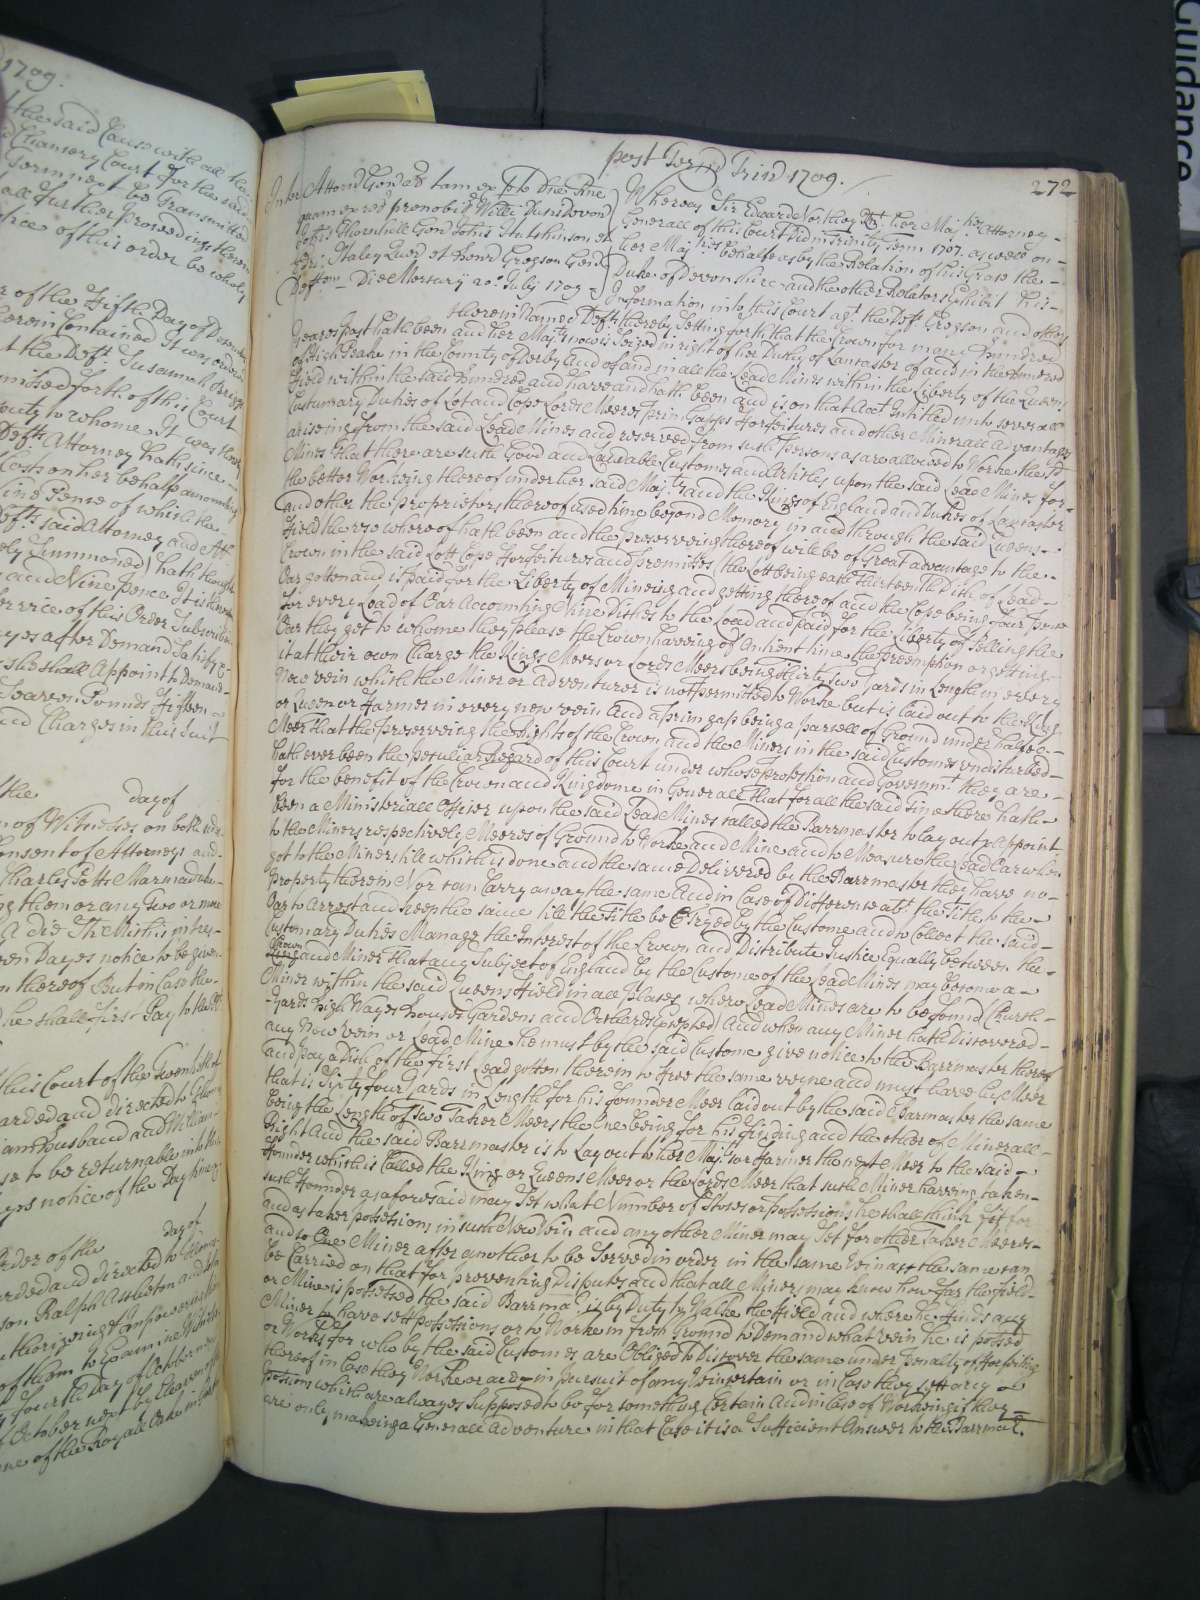 1709.
the said Cause with all the
Chancery Court for the said
all further proceedings therein
of this order be wholy
of the Fifth Day of
herein Contained It was ordered
t the Deft Susannah
forth of this Court
to whome It was
Defts Attorney hath since
Costs on her behalf amounting
Nine Pence of which the
Defts said Attorney and
Summoned hath
and Nine pence It is
service of this Order Subscribed
ayes after Demand Satisfy
she shall Appoint to Demand
Seaven Pounds Fifteen
and Charges in this Suit
the day of
n of Witnesses on both
Consent of Attorneys and
Charles Potts Marmaduke
them or any two or more
ven Dayes notice to be given
thereof But in Case the
he shall first Pay to the
this Court of the Twentieth of
arded and directed to
husband and William
se to be returnable into the
notice of the Day
Order of the day of
arded and directed to
son Ralph Assheton and
Authorizeing & impowering
of them to Examine Witnesses
fourth Day of October next
of October next by
of the Royall
post Termn Trin 1709.
272
Inter Attornd Genl
quam ex rel prenobil Willi Ducis Devon
Johis Thornhill Gen Johis Hutchinson et
Staley Quer et Henrd Grogson Gend
Deften Die Mercurij 20o July 1709
Whereas Sir Edward Northey Kt her Majties Attorney
Generall of this Court did in Trinity Term 1707. as well on
her Majties behalfe as by the Relation of his Grace the
Duke of Devonshire and the other Relators Exhibit this
Information into this Court agt the Deft Grogson and others
therein Named Defts thereby Setting forth that the Crown for many hundred
yeares past hath been and her Majty now is Seized in right of her Dutchy of Lancaster of and in the hundred
of High Peake in the County of Derby And of and in all the Lead Mines within the Liberty of the Queens
Field within the said hundred and have and hath been and is on that Acct Intitled unto severall
Customary Duties of Lot and Cope Lords Meeres prim Gapps Forfeitures and other Minerall advantages
ariseing from the said Lead Mines and reserved from such Persons as are allowed to Worke the sd
Mines That there are such Good and Laudable Customes and Articles upon the said Lead Mines for
the better Working thereof under her said Majty and the Kings of England and Dukes of Lancaster
and other the Proprietors thereof used time beyond Memory in and through the said Queens
Field the use whereof hath been and the preserveing thereof will be of Great advantage to the
Crown in the said Lott Cope Forfeitures and premisses the Lott being each Thirteenth Dish of Lead
Oar gotten and is paid for the Liberty of Mineing and getting thereof and the Cope being four Pence
for every Load of Oar Accounting Nine Dishes to the Load and paid for the Liberty of Selling the
Oar they get to whome they please the Crown haveing of Antient time the Preemption or getting
it at their own Charge the Kings Meers or Lords Meers being thirty two Yards in Length in every
New vein which the Miner or Adventurer is not Permitted to Worke but is laid out to the King
or Queen or Farmer in every new vein And a prim gap being a parcell of Ground under halfe a
Meer That the preserveing the Rights of the Crown and the Miners in the said Customes undisturbed
hath ever been the peculiar Regard of this Court under whose protection and Governmt they are
for the benefit of the Crown and Kingdome in Generall That for all the said time there hath
been a Ministeriall Officer upon the said Lead Mines called the Barrmaster to lay out & Appoint
to the Miners respectively Meeres of Ground to Worke and Mine and to Measure the Lead Oar when
got to the Miners till which is done and the same Delivered by the Barrmaster they have no
property therein Nor can Carry away the same And in Case of Difference abt the Title to the
Oar to Arrest and keep the same till the Title be Tryed by the Custome and to Collect the said
Customary Duties Manage the Interest of the Crown and Distribute Justice Equally between the
Crown
and Miner That any Subject of England by the Custome of the Lead Mines may become a
Miner within the said Queens Field in all Places where Lead Mines are to be found (Church
Yards High Wayes Houses Gardens and Orchards Excepted) And when any Miner hath Discovered
any New vein or Lead Mine he must by the said Custome give notice to the Barrmaster thereof
and pay a Dish of the first Lead gotten therein to free the same veine and must have his Meer
that is Sixty four Yards in Length for his founder Meer laid out by the said Barmaster the same
being the Length of Two Taker Meers the One being for his finding and the other of Minerall
Right And the said Barrmaster is to Lay out to her Majty or Farmer the next Meer to the said
Founder which is Called the King or Queens Meer or the Lords Meer that such Miner haveing taken
such Founder as aforesaid may Set what Number of Stoses or Possessions he shall think fit for
and as taker possessions in such New Vein and any other Miner may Set for other Taker Meeres
and so One Miner after another to be Served in order in the same Vein as the same can
be Carried on that for preventing Disputes and that all Miners may know how far the Field
or Mine is possessed the said Barrmar is by Duty to Walke the Field and where he finds any
Miner to have sett Possessions or to Worke in fresh Ground to Demand what vein he is possed
or Works for who by the said Customes are Obliged to Discover the same under Penalty of Forfeiting
thereof in Case they Worke or are in pursuit of any Vein certain or in Case they sett any
Possions which are alwayes Supposed to be for something Certain And in Case of Workeing if they
are only makeing a Generall Adventure in that Case it is a Sufficient Answer to the Barrmar.
Guidance